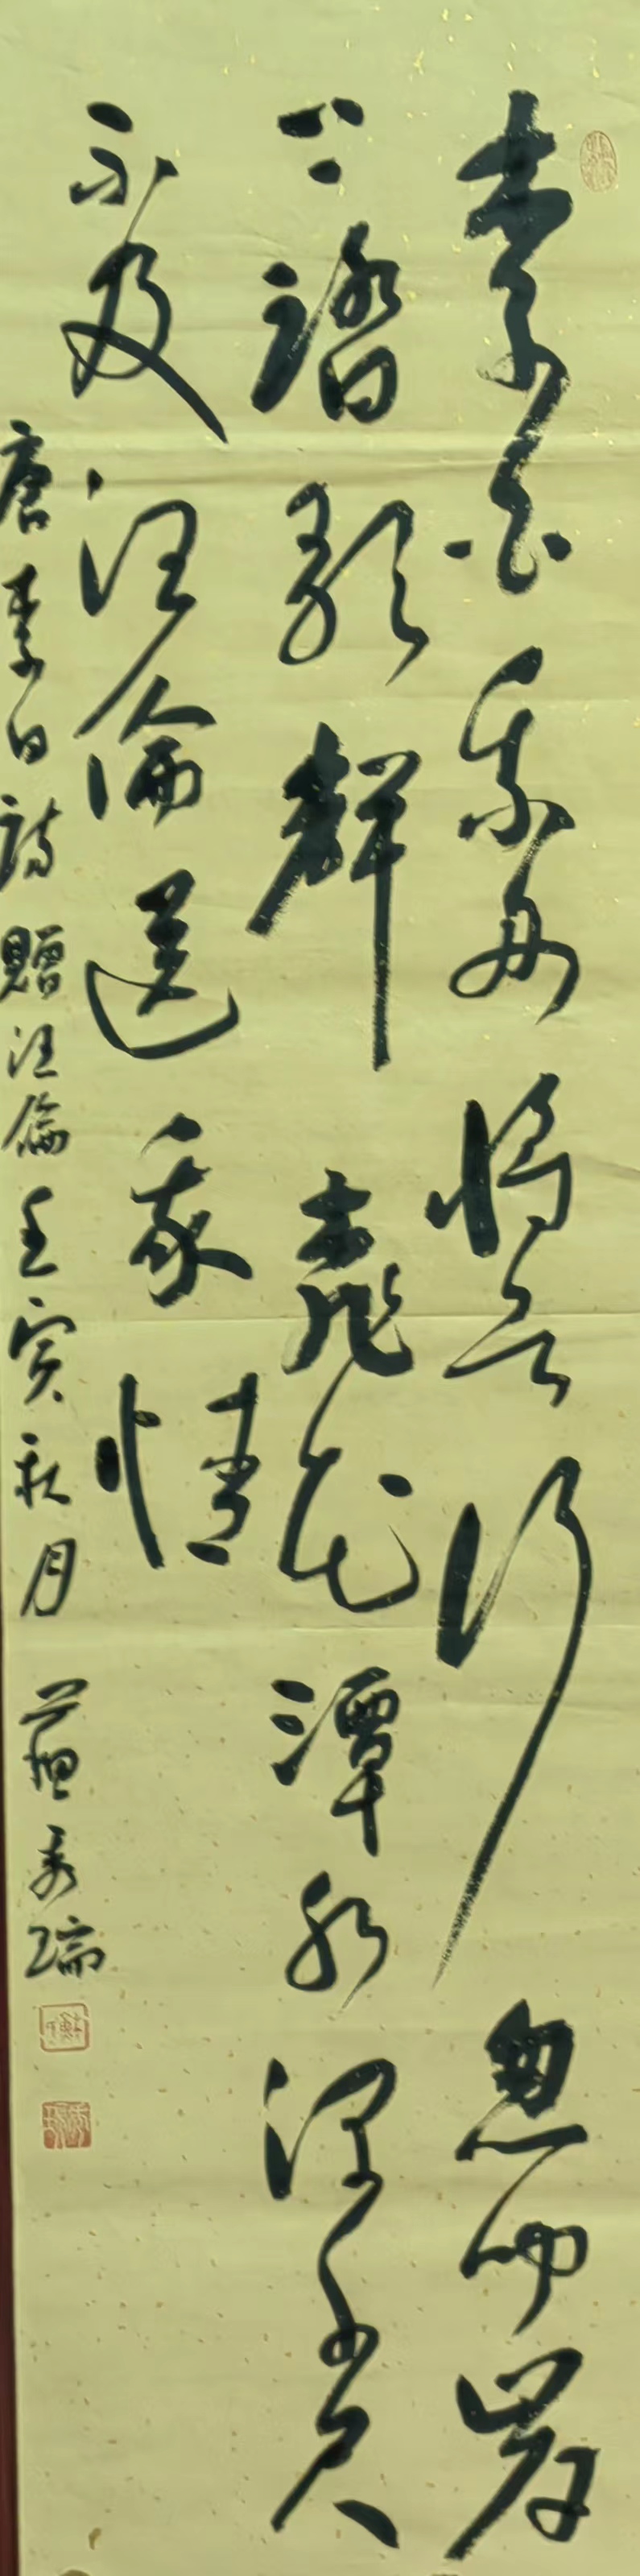 李白乘舟將欲行忽聞岸
上踏歌聲桃花潭水深千尺
不及汪倫送我情
唐李白詩贈汪倫壬寅秋月秀瑞